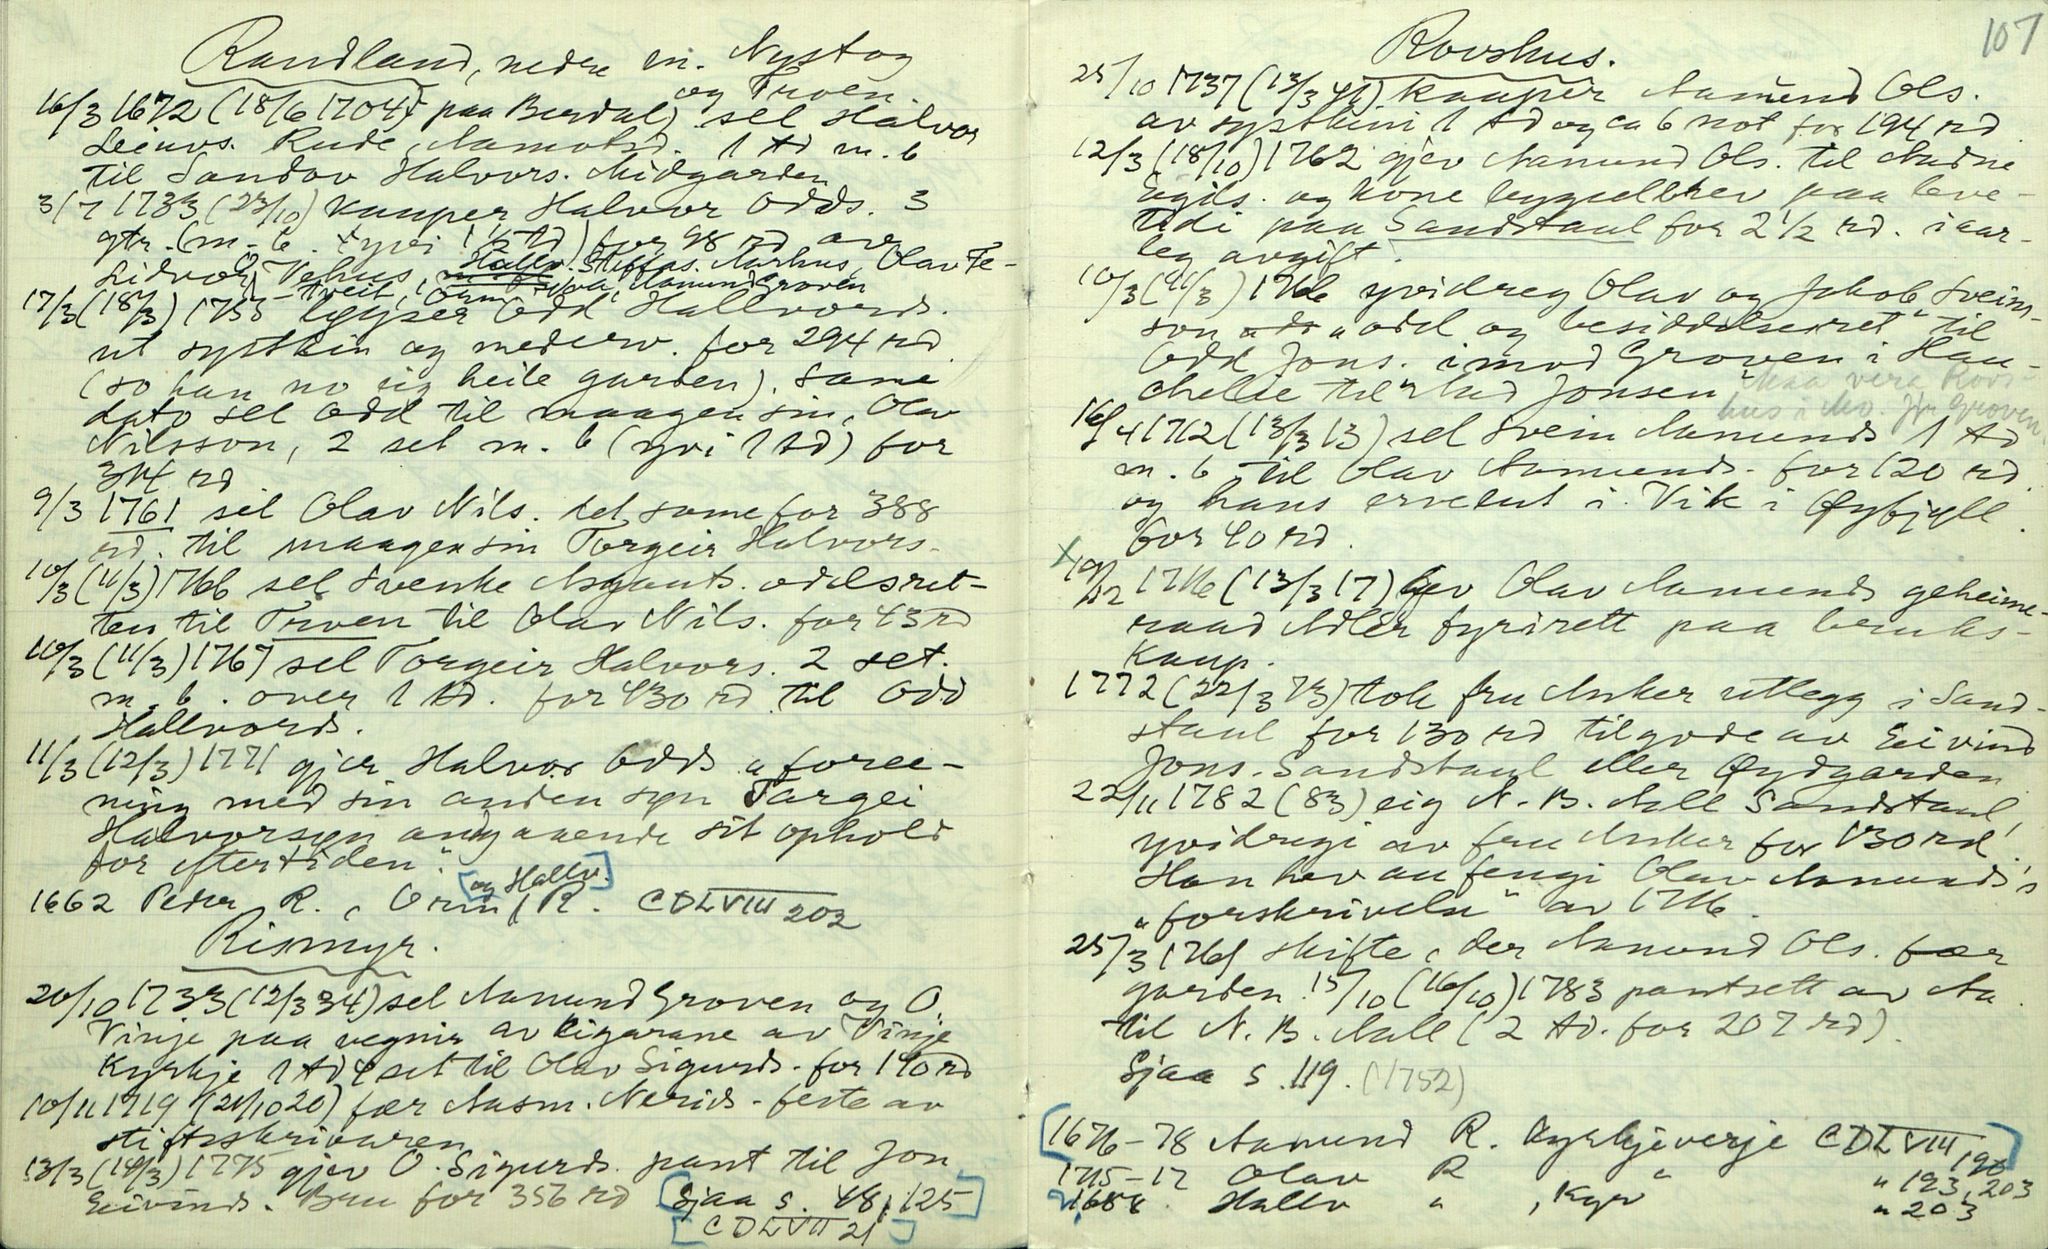 Randland, nedre m. Nystog
og Troen.
16/3 1672 (18/6 1704 paa Berdal) sel Halvor
Leivs. Rude, Aamotsd. 1 td m. b
til Sandov Halvors. Midgarden
3/7 1733 (23/10) kauper Halvor Odds. 3
qtr. (m. b. yvi 1 1/2 td) for 98 rd av
Lidvor Vehus, Hallv. Steffens. Aarhus, Olav Te-
Tveit, Orm, Aamund Groven
17/3 (18/3) 1755 løyser Odd Hallvords.
ut systkin og mederv. for 294 rd
(so han no eig heile garden). Same
dato sel Odd til maagen sin, Olav
Nilsson, 2 set m. b (yvi 1 td) for
314 rd
9/3 1761 sel Olav Nils. det same for 388
rd. til maagen sin Torgeir Halvors.
10/3 (11/3) 1766 sel Svenke Asgauts. odelsret-
ten til Troen til Olav Nils. for 43 rd
10/3 (11/3) 1767 sel Torgeir Halvors. 2 set.
m. b. over 1 td. for 430 rd til Odd
Hallvords.
11/3 (12/3) 1771 gjer Halvor Odds „foree-
ning med sin anden søn Targei
Halvorsøn angaaende sit ophold
for eftertiden“.
1662 Peder R., Orm [og Hallv.] R. CDLVIII 202
Rismyr.
20/10 1733 (12/3 34) sel Aamund Groven og O.
Vinje paa vegnir av eigarane av Vinje
Kyrkje 1 td 4 set til Olav Sigurds. for 140 rd
10/11 1719 (21/10 20) fær Aasm. Nerids. feste av
stiftsskrivaren
13/3 (14/3) 1775 gjev O. Sigurds. pant til Jon
Eivinds. Bru for 356 rd [Sjaa s. 48, 125]
[CDLVII 21]
107
Rovshus.
25/10 1737 (13/3 41) kauper Aamund Ols.
av systkini 1 td og ca 6 not for 194 rd
12/3 (18/10) 1762 gjev Aamund Ols. til Audne
Egils. og kone bygselbrev paa leve-
tidi paa Sandstaul for 2 1/2 rd. i aar-
leg avgift.
10/3 (11/3) 1766 yvidreg Olav og Jakob Sveins-
son „odel og besiddelsesret“ til
Odd Jons. imod Groven i Hau-
chelie til Jonsen
Maa vera Rovs-
hus i Mo. Jfr Groven.
16/4 1712 (13/3 13) sel Svein Aamunds 1 td
m. b til Olav Aamunds. for 120 rd
og hans ervelut i Vik i Øyfjell
for 40 rd.
x 19/12 1716 (13/3 17) gev Olav Aamunds geheime-
raad Adler fyrirett paa bruks-
kaup.
1772 (22/3 73) tok fru Anker utlegg i Sand-
staul for 130 rd tilgode av Eivind
Jons. Sandstaul eller Øydgarden
22/11 1782 (83) eig N. B. Aall Sandstaul,
yvidregi av fru Anker for 130 rd.
Han hev au fengi Olav Aamunds's
„forskrivelse“ av 1716.
25/3 1761 skifte, der Aamund Ols. fær
garden. 15/10 (16/10) 1783 pantsett av Aa.
til N. B. Aall (2 td. for 207 rd).
Sjaa s. 119. (1752)
[1676-78 Aamund R. Kyrkjeverje CDLVIII 190]
1715-17 Olav R „ „ 193, 203
1688 Hallv „, Kyr „ 203